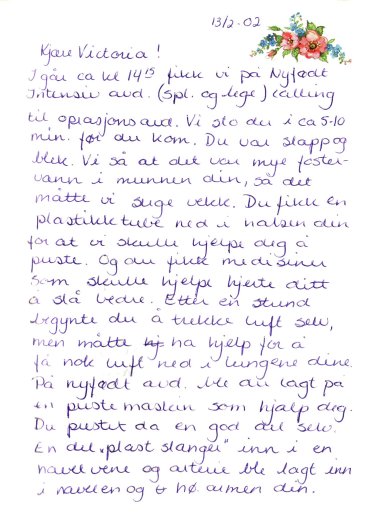 13/2-02
Kjære Victoria!
I går ca kl 14¹⁵ fikk vi på Nyfødt
Intensiv avd. (spl. og lege) calling
til oprasjonsavd. Vi sto du i ca 5-10
min. før du kom. Du var slapp og
blek. Vi så at det var mye foster-
vann i munnen din, så det
måtte vi suge vekk. Du fikk en
plastikktube ned i halsen din
for at vi skulle hjelpe deg å
puste. Og du fikk medisiner
som skulle hjelpe hjerte ditt
å slå bedre. Etter en stund
begynte du å trekke luft selv,
men måtte ha hjelp for å
få nok luft ned i lungene dine.
På nyfødt avd. ble du lagt på
en pustemaskin som hjalp deg.
Du pustet da en god del selv.
En del „plastslanger" inn i en
navelvene og arterie ble lagt inn
i navelen og hø. armen din.